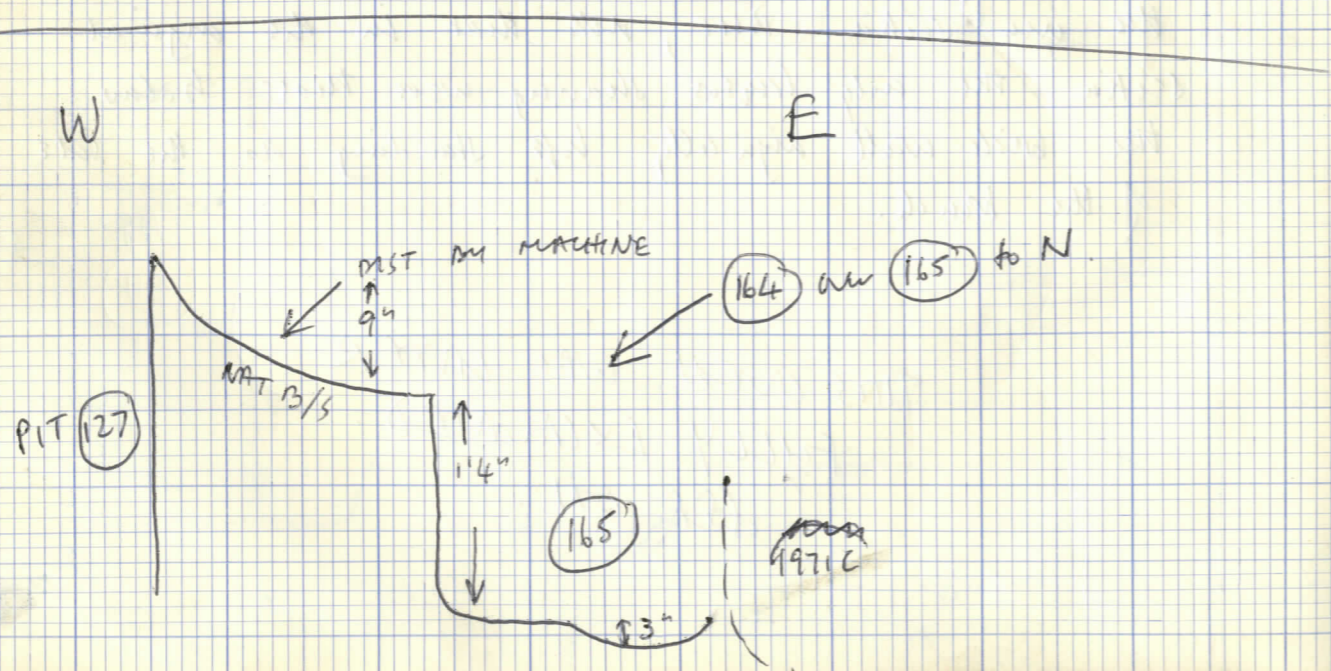 W
E
DIST BY MACHINE
9"
164 over 165 to N.
NAT B/S
PIT 127
1'4"
165
1971 C
3"